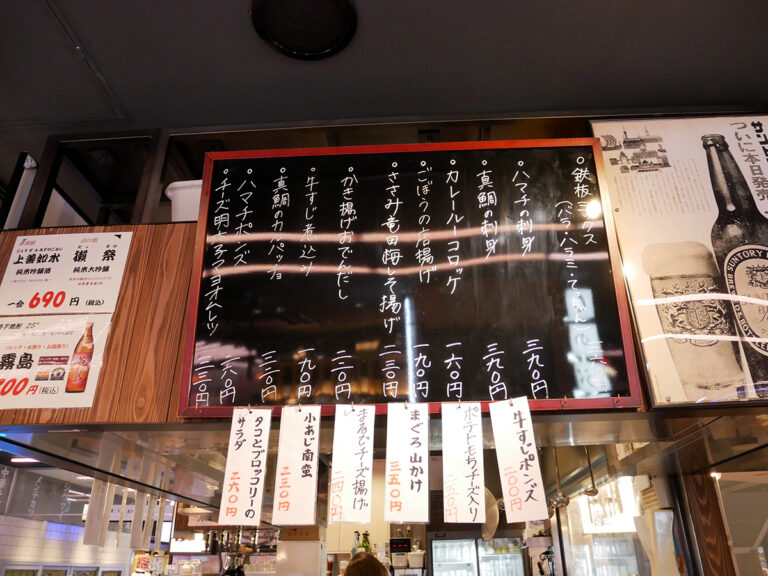 鉄板ミックス
(バラ・ハラミ・てっちゃん)
ハマチの刺身
三九〇円
真鯛の刺身
三九〇円
カレールーコロッケ
一六〇円
ごぼうの唐揚げ
一九〇円
ささみ竜田梅しそ揚げ
二三〇円
かき揚げおでんだし
二二〇円
牛すじ煮込み
一九〇円
真鯛のカルパッチョ
三三〇円
ハマチポンズ
二六〇円
チーズ明太子マヨオムレツ
二三〇円
牛すじポンズ
二〇〇円
ポテトもちチーズ入り
二五〇円
まぐろ山かけ
三五〇円
チーズ揚げ
二四〇円
小あじ南蛮
二三〇円
タコとブロッコリーの
サラダ
二六〇円
獺祭
純米大吟醸
上善如水
純米吟醸酒
一合 690円(税込)
芋焼酎 25°
(ロック・水割り・お湯割り)
霧島
円(税込)
ついに本日発売
SUNTORY